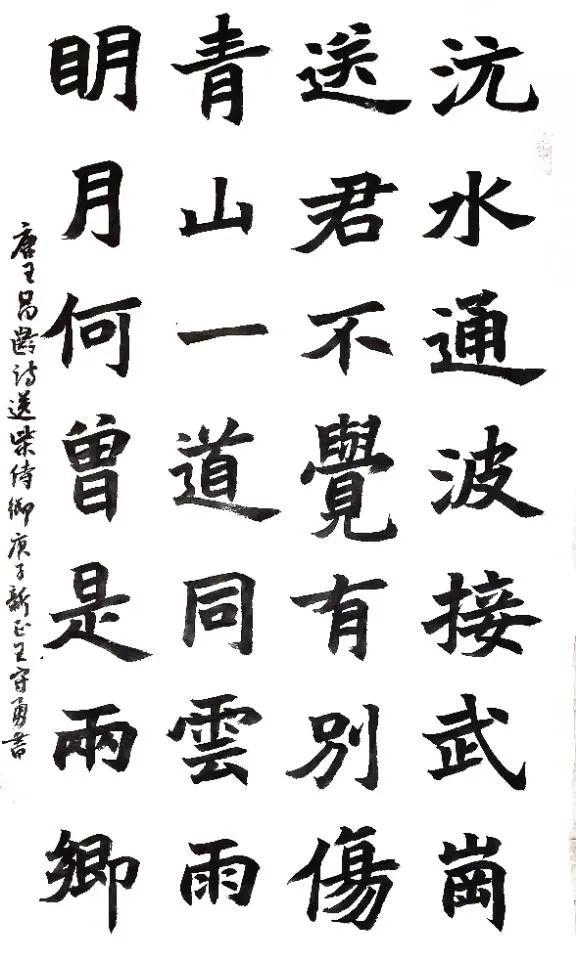 沅水通波接武崗
送君不覺有別傷
青山一道同雲雨
明月何曾是兩卿
唐王昌齡詩送柴侍御庚子新正王守勇書